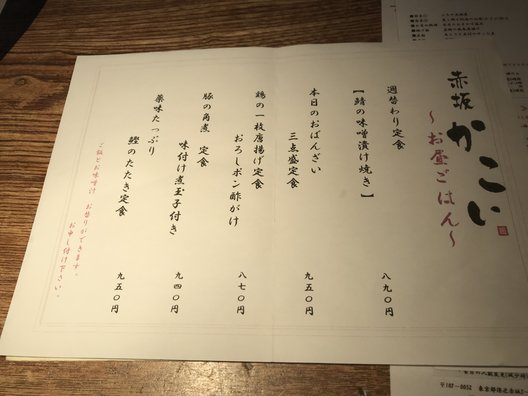 赤坂 かこい
〜お昼ごはん〜
週替わり定食
【鯖の味噌漬け焼き】
八九〇円
本日のおばんざい
三点盛定食
九五〇円
鶏の一枚唐揚げ定食
おろしポン酢がけ
八七〇円
豚の角煮 定食
味付け煮玉子付き
九四〇円
薬味たっぷり
鰹のたたき定食
九五〇円
ご飯とお味噌汁 お替りができます。
お申し付け下さい。
〒107-0052 東京都港区赤坂